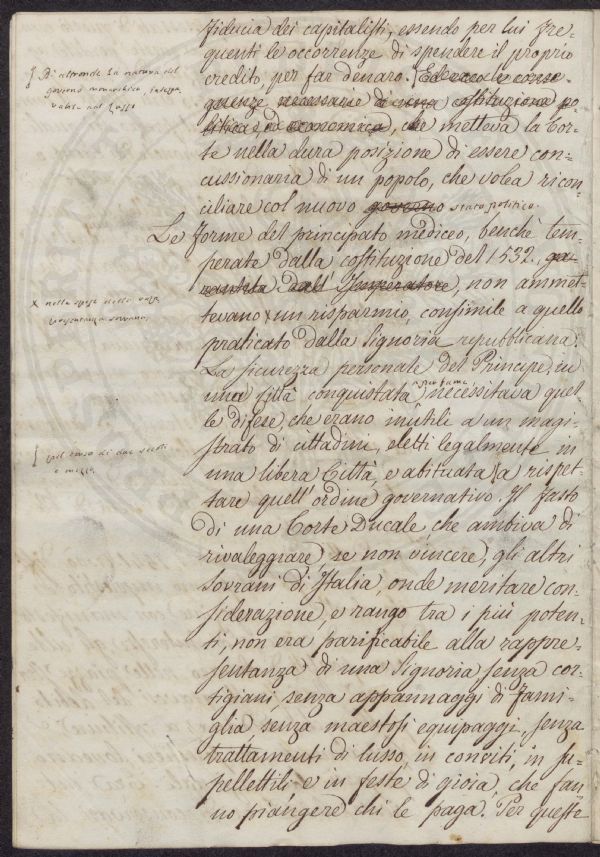 fiducia dei capitalisti, essendo per lui fre=
quenti le occorrenze di spendere il proprio
credito, per far denaro. Ed ecco le conse=
guenze necessarie di una costituzione po=
litica ed economica, che metteva la Cor=
te nella dura posizione di essere con=
cussionaria di un popolo, che volea ricon=
ciliare col nuovo governo stato politico.
Di altronde la natura del
governo monarchico,
Le forme del principato mediceo, benchè tem=
perate dalla costituzione del 1532, ga=
rantita dall' Imperatore, non ammet=
tevano un risparmio, consimile a quello
x nelle spese della
rappresentanza sovrana,
praticato dalla Signoria repubblicana.
La sicurezza personale del Principe, in
una città conquistata per fame, necessitava quel=
le difese, che erano inutili a un magi=
strato di cittadini, eletti legalmente in
una libera Città, e abituata a rispet=
pel corso di due secoli
e mezzo
tare quell'ordine governativo. Il fasto
di una Corte Ducale che ambiva di
rivaleggiare, se non vincere, gli altri
Sovrani di Italia, onde meritare con=
siderazione, e rango tra i più poten=
ti, non era parificabile alla rappre=
sentanza di una Signoria senza cor=
tigiani, senza appannaggi di fami=
glia, senza maestosi equipaggi, senza
trattamenti di lusso, in conviti, in su=
pellettili e in feste di gioia, che fan=
no piangere chi le paga. Per queste